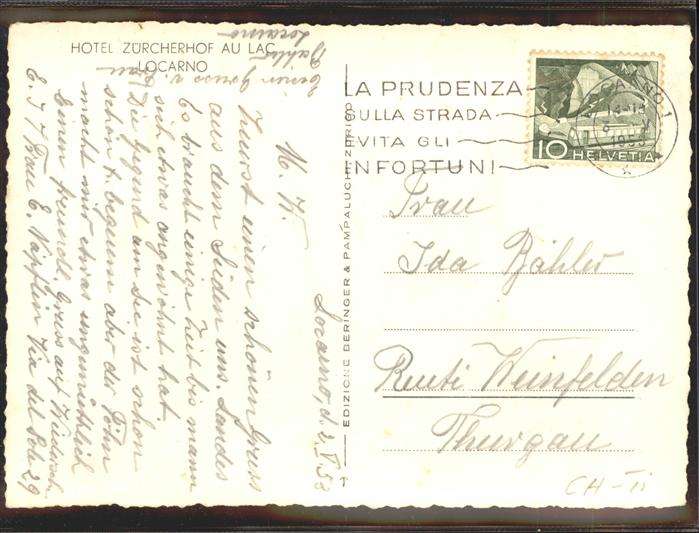 HOTEL ZÜRCHERHOF AU LAC
LOCARNO
Locarno, d. 2. V 53
M. H.
Zuerst einen schönen Gruss
aus dem Süden uns. Landes
Es braucht einige Zeit bis mann
sich etwas angewöhnt hat.
Die Gegend am See ist schon
schon & bequem aber der Föhn
macht mir etwas ungemütlich
Einen freundl. Gruss auf Wiederseh
E. J. & Frau E.
Via del Sole 29
Einen Gruss v. Frau
Bähler
Locarno
EDIZIONE BERINGER & PAMPALUCHI ZURIGO
LA PRUDENZA
SULLA STRADA
EVITA GLI
INFORTUNI
1953
10 HELVETIA
Frau
Ida Bähler
Reuti Weinfelden
Thurgau
CH-Ti